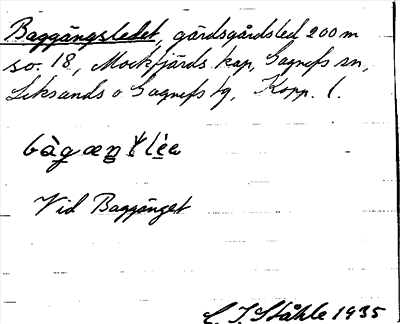 Baggängsledet, gärdsgårdsled 200 m
so. 18, Mockfjärds kap, Gagnefs sn,
Leksands o Gagnefs tg, Kopp. l.
Vid Baggänget
C. I. Ståhle 1935